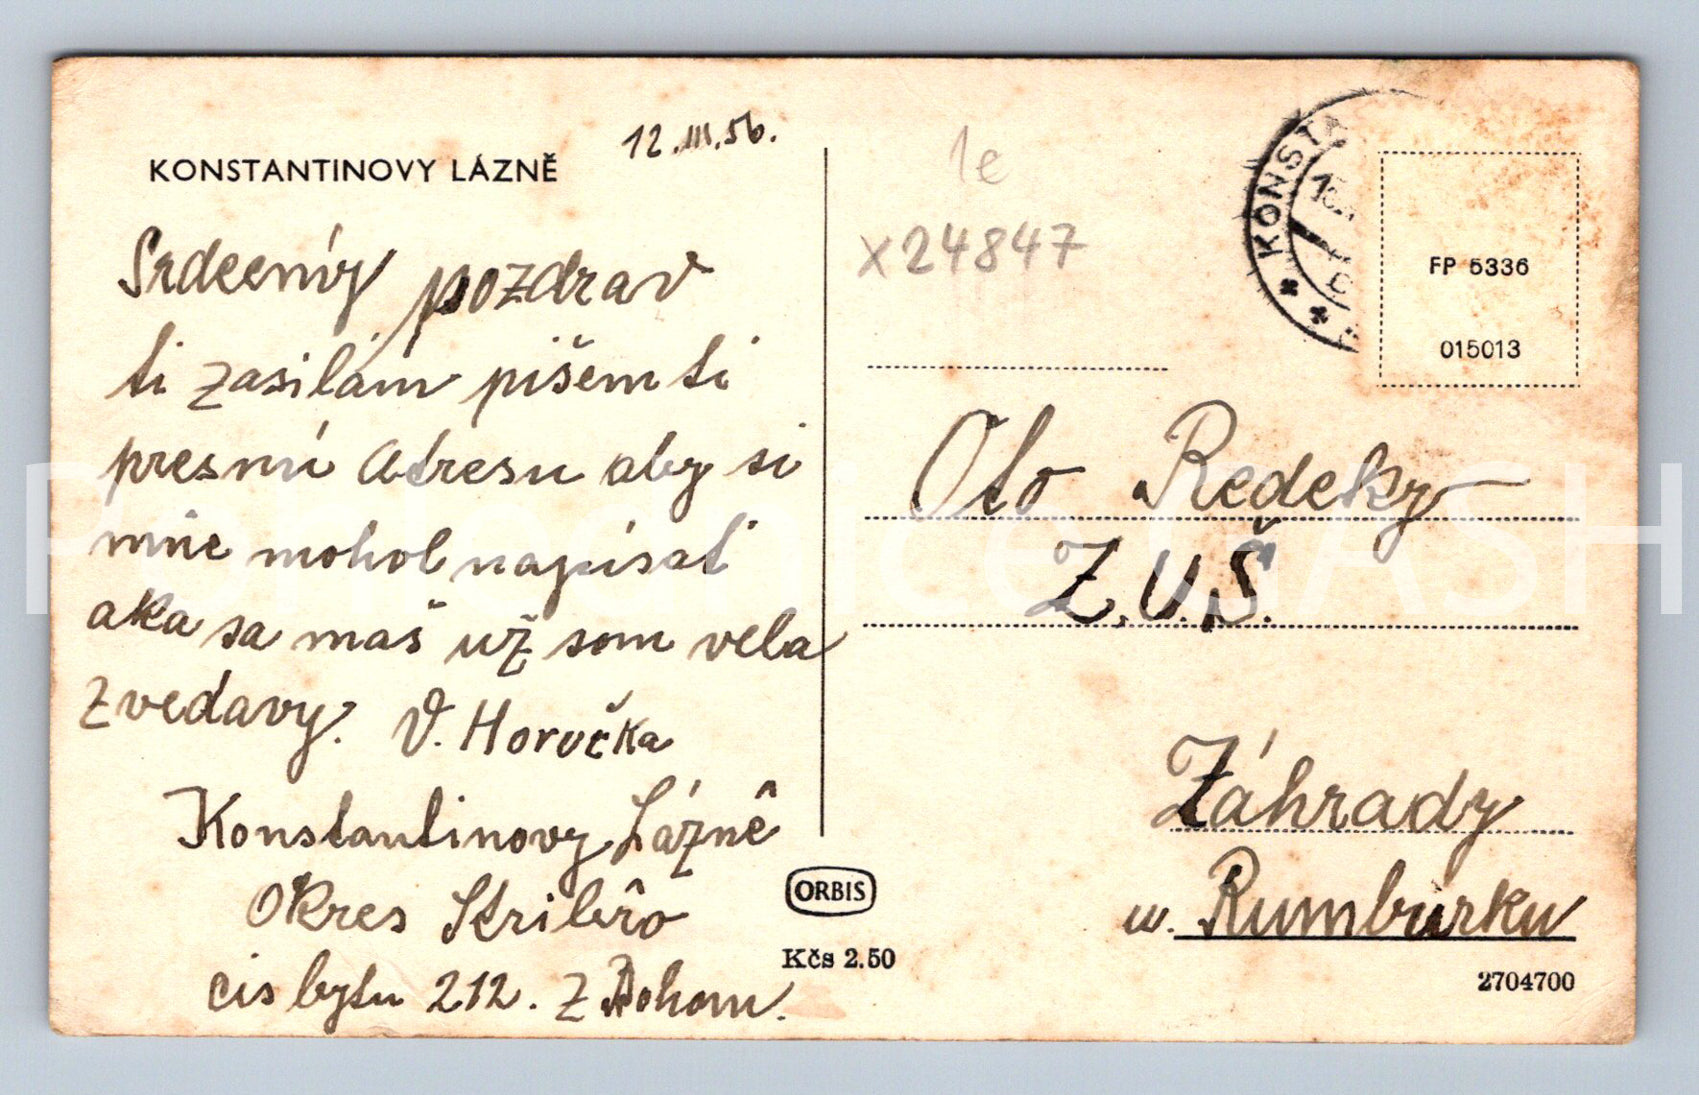 12.III.56.
KONSTANTINOVY LÁZNĚ
Srdecný pozdrav
ti zasilám pišem ti
presnú adresu aby si
mňe mohol napísať
aka sa maš už som vela
zvedavy. V. Horvčka
Konstantinovy Lázně
Okres Stribro
cis bytu 212. Z Bohom.
1e
x24847
KONST
FP 5336
015013
Oto Redeky
Z.U.Š.
Záhrady
u. Rumburku
ORBIS
Kčs 2.50
2704700